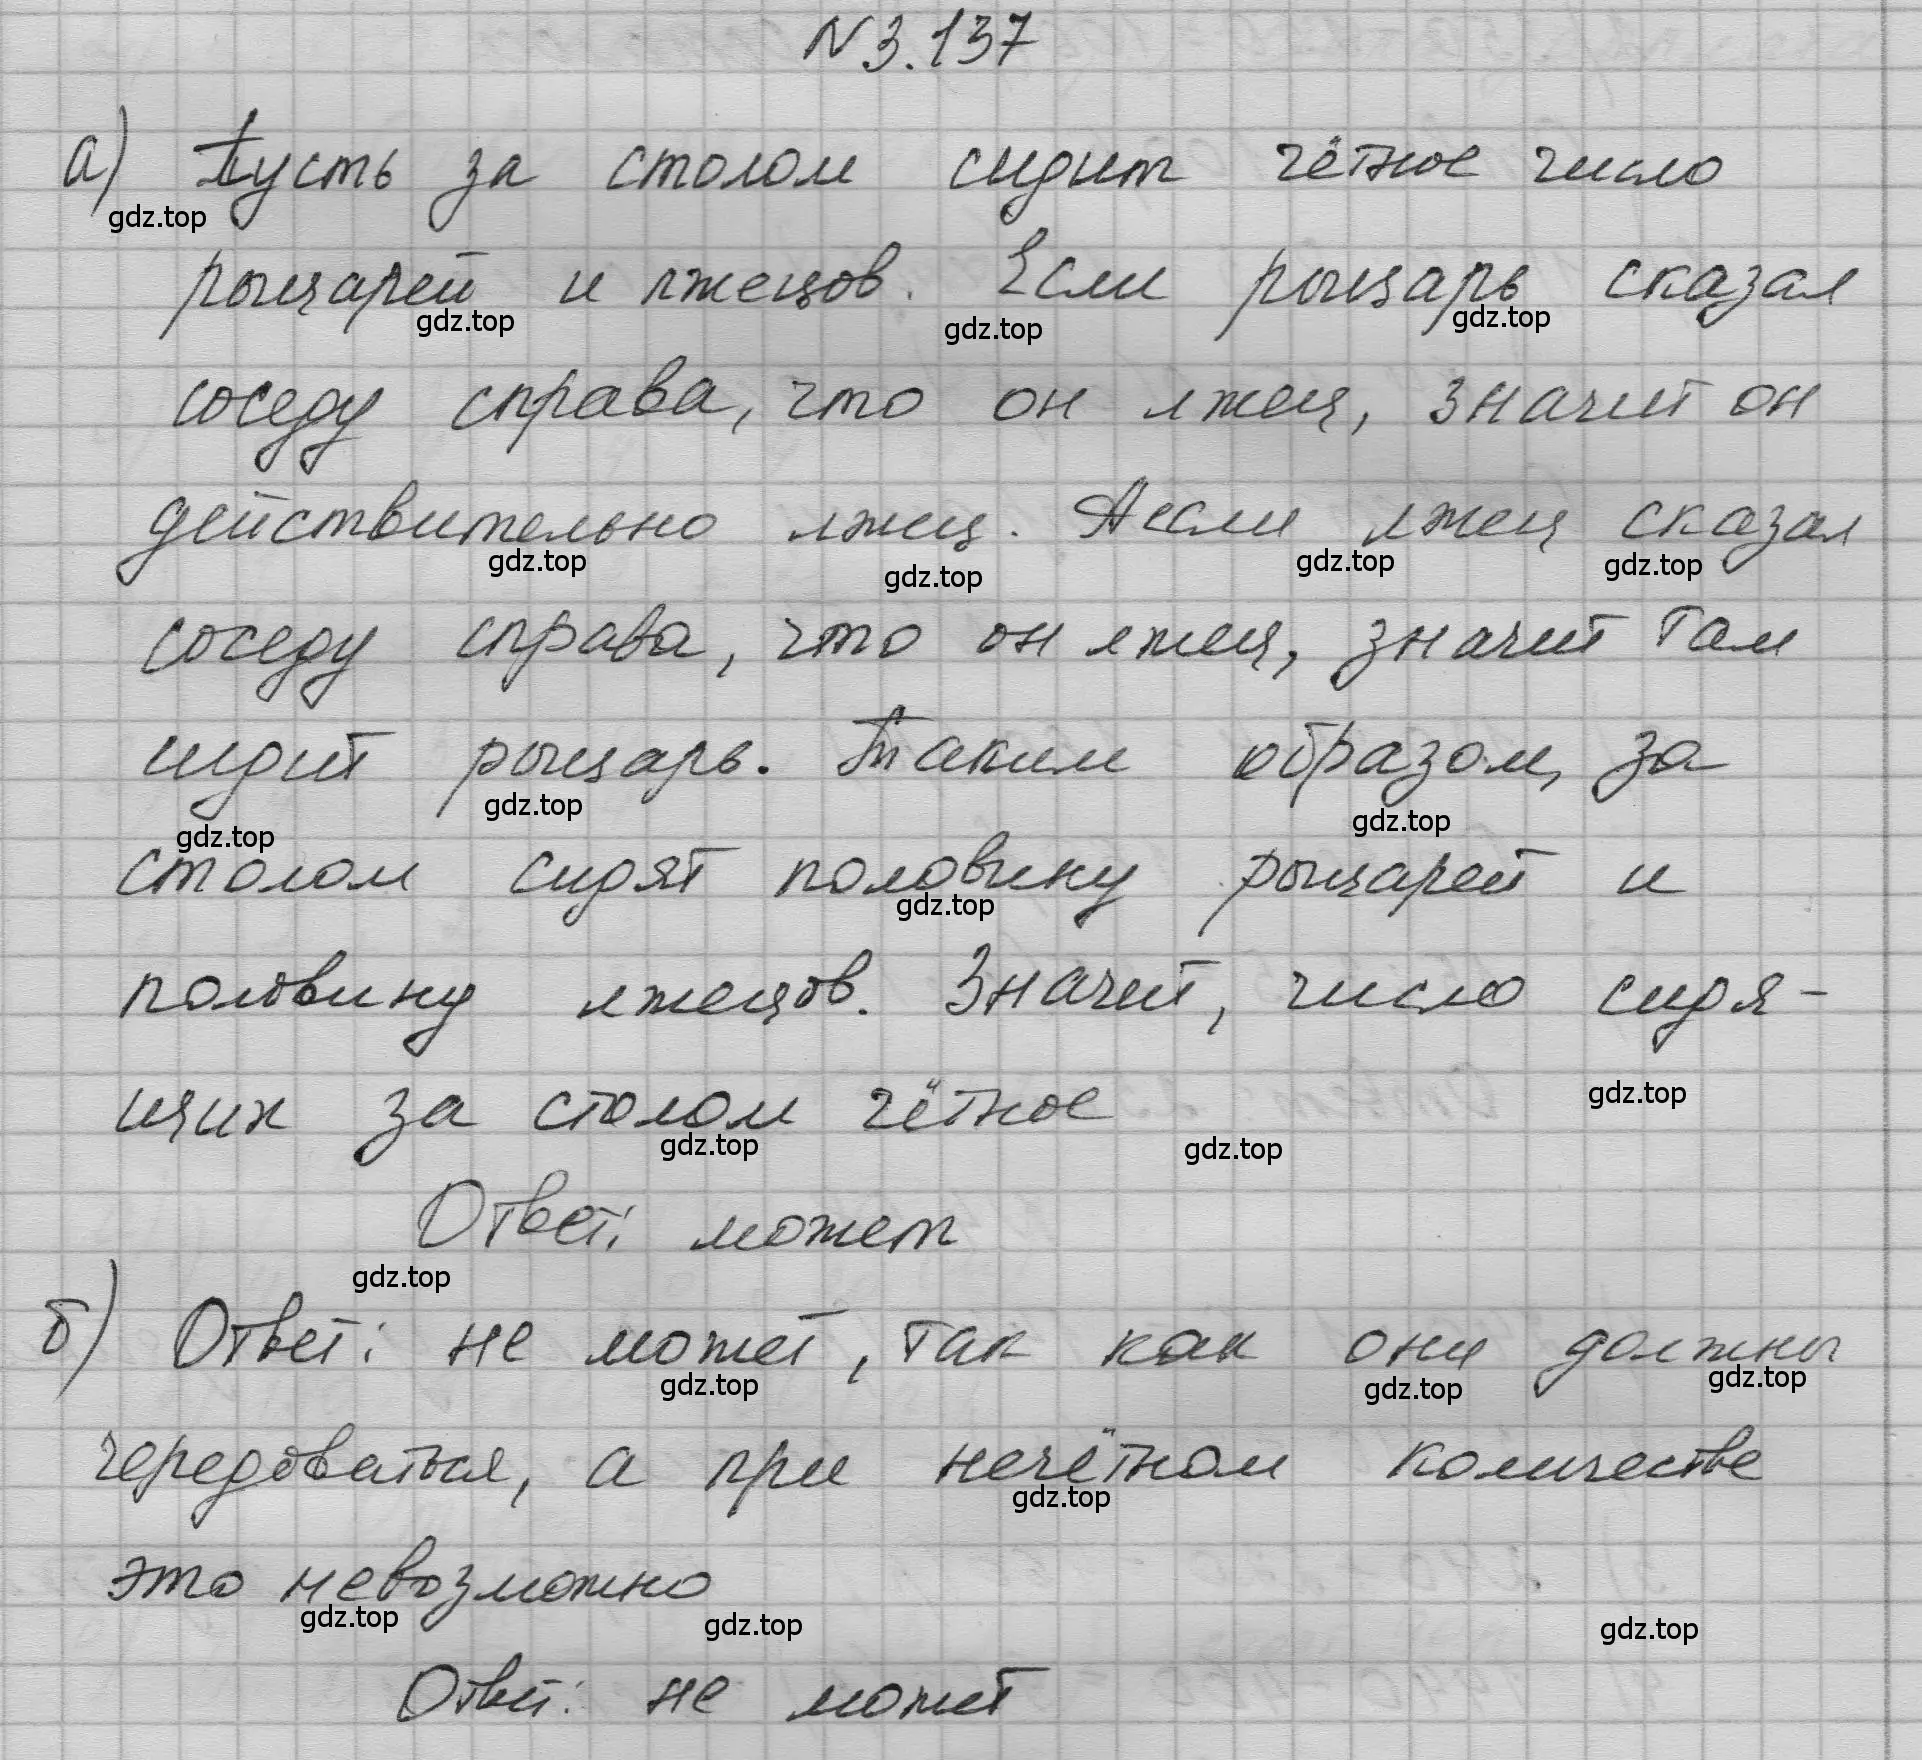 N 3.137
а) Пусть за столом сидит чётное число
gdz.top
рыцарей и лжецов. Если рыцарь сказал
gdz.top gdz.top gdz.top
соседу справа, что он лжец, значит он
действительно лжец. А если лжец сказал
gdz.top gdz.top gdz.top gdz.top
соседу справа, что он лжец, значит там
сидит рыцарь. Таким образом, за
gdz.top gdz.top gdz.top
столом сидят половину рыцарей и
gdz.top
половину лжецов. Значит, число сидя-
щих за столом чётное
gdz.top gdz.top gdz.top
Ответ: может
gdz.top
б) Ответ: не может, так как они должны
gdz.top gdz.top gdz.top
чередоваться, а при нечётном количестве
gdz.top
это невозможно
gdz.top gdz.top gdz.top
Ответ: не может